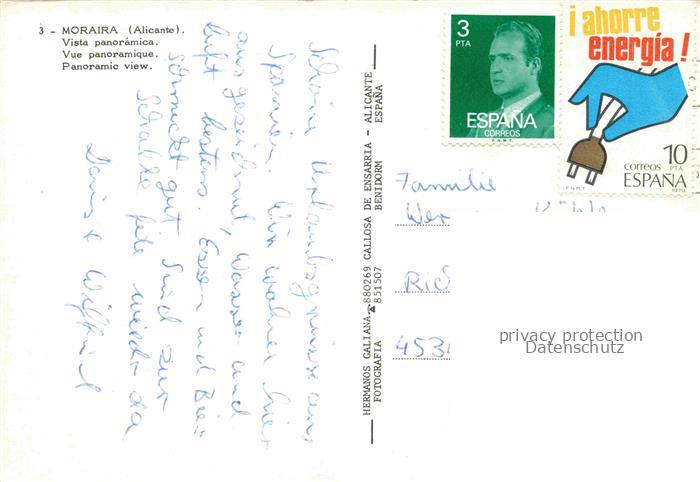 3 - MORAIRA (Alicante).
Vista panorámica.
Vue panoramique.
Panoramic view.
Schöne Urlaubsgrüsse aus
Spanien. Wir wohnen hier
ausgezeichnet, Wasser und
Luft bestens. Essen und Bier
schmeckt gut. Sind zur
Schalke fete wieder da
Doris + Wilfried
HERMANOS GALIANA 880269 CALLOSA DE ENSARRIA - ALICANTE
FOTOGRAFIA 851507 BENIDORM ESPAÑA
3
PTA
ESPAÑA
CORREOS
F.N.M.T.
¡ahorre
energía!
10
PTA
CORREOS
ESPAÑA
F.N.M.T. 1979
Familie
Wer
453
privacy protection
Datenschutz